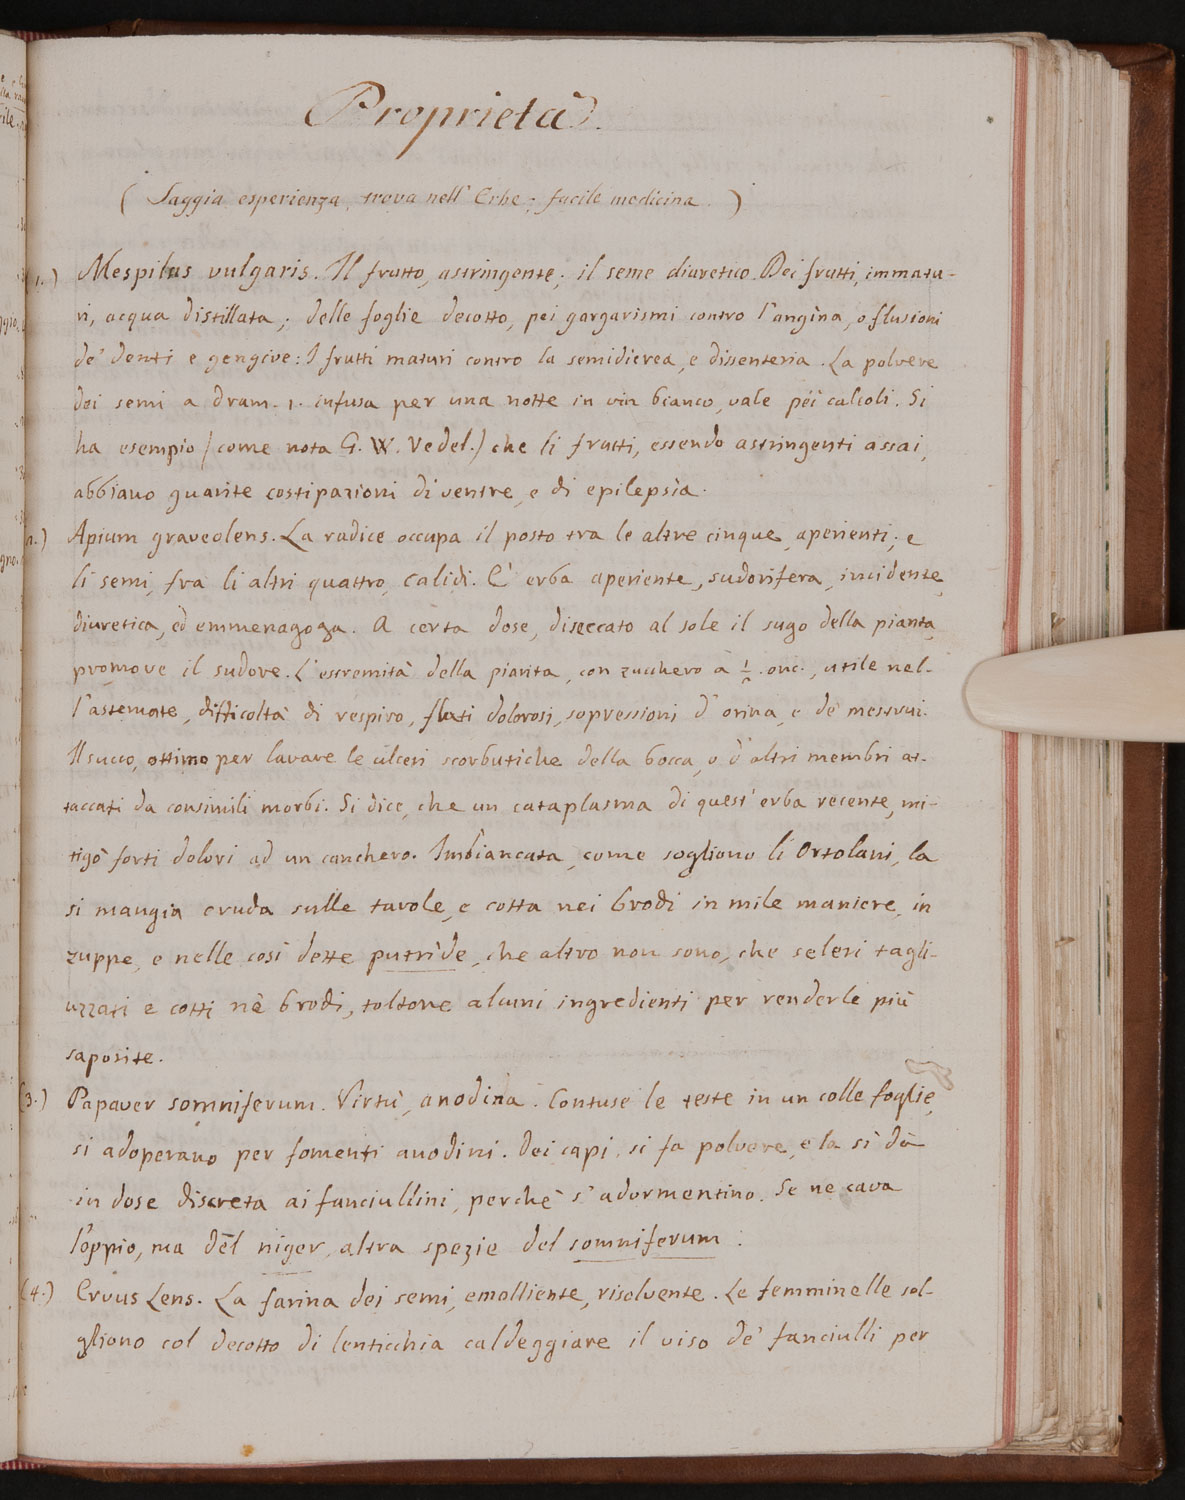 Proprietà.
( Saggia esperienza, trova nell' Erbe ; facile medicina. )
1.) Mespilus vulgaris. Il frutto, astringente; il seme diuretico. Dei frutti, immatu-
ri, acqua distillata; delle foglie decotto, pei gargarismi contro l'angina, o flusioni
de' denti e gengive: I frutti maturi contro la semidierea, e dissenteria. La polvere
dei semi a dram. 1. infusa per una notte in vin bianco, vale pei calcoli. Si
ha esempio (come nota G. W. Vedel.) che li frutti, essendo astringenti assai,
abbiano guarite costipazioni di ventre, e di epilepsia.
2.) Apium graveolens. La radice occupa il posto tra le altre cinque, aperienti; e
li semi, fra li altri quattro, calidi. E' erba aperiente, sudorifera, incidente,
diuretica, ed emmenagoga. A certa dose, diseccato al sole il sugo della pianta,
promove il sudore. L'estremità della pianta, con zucchero a onc., utile nel-
l'astemate, difficoltà di respiro, flati dolorosi, sopressioni d'orina, e de' mestrui.
Il succo, ottimo per lavare le ulceri scorbutiche della bocca, o d'altri membri at-
taccati da consimili morbi. Si dice, che un cataplasma di quest' erba recente, mi-
tigò forti dolori ad un canchero. Imbiancata, come sogliono li Ortolani, la
si mangia cruda sulle tavole, e cotta nei brodi in mile maniere, in
zuppe, e nelle così dette putride, che altro non sono, che seleri tagli-
uzzati e cotti nè brodi, toltone alcuni ingredienti per renderle più
saposite.
(3.) Papaver somniferum. Virtù, anodina. Contuse le teste in un colle foglie,
si adoperano per fomenti anodini. Dei capi, si fa polvere, e la si dà
in dose discreta ai fanciullini, perchè s'adormentino. Se ne cava
l'oppio, ma del niger, altra spezie del somniferum.
(4.) Ervus Lens. La farina dei semi, emolliente, risolvente. Le femminelle sol-
gliono col decotto di lenticchia caldeggiare il viso de' fanciulli per